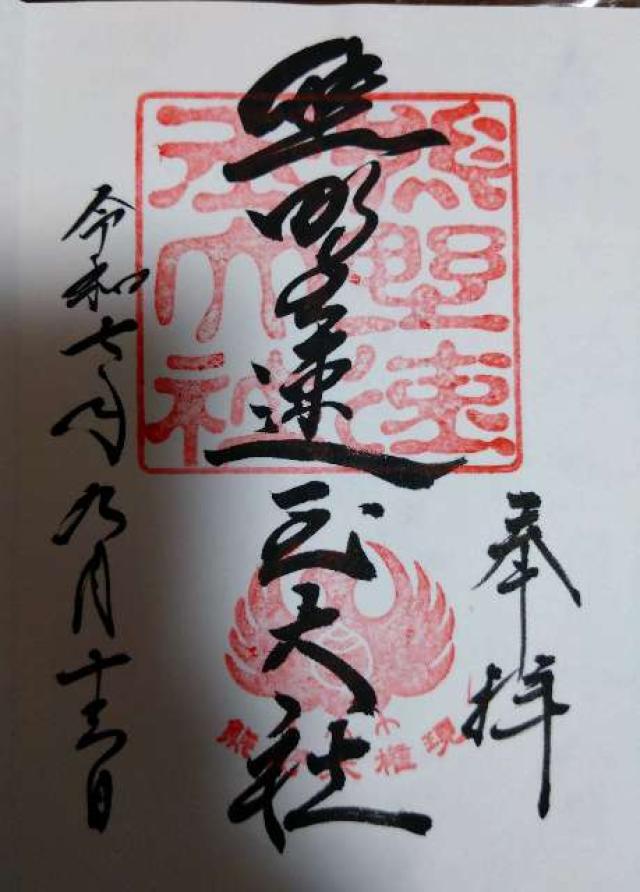 奉拝
熊野速玉大社
熊野速
玉大社
熊野大権現
令和七年九月十日